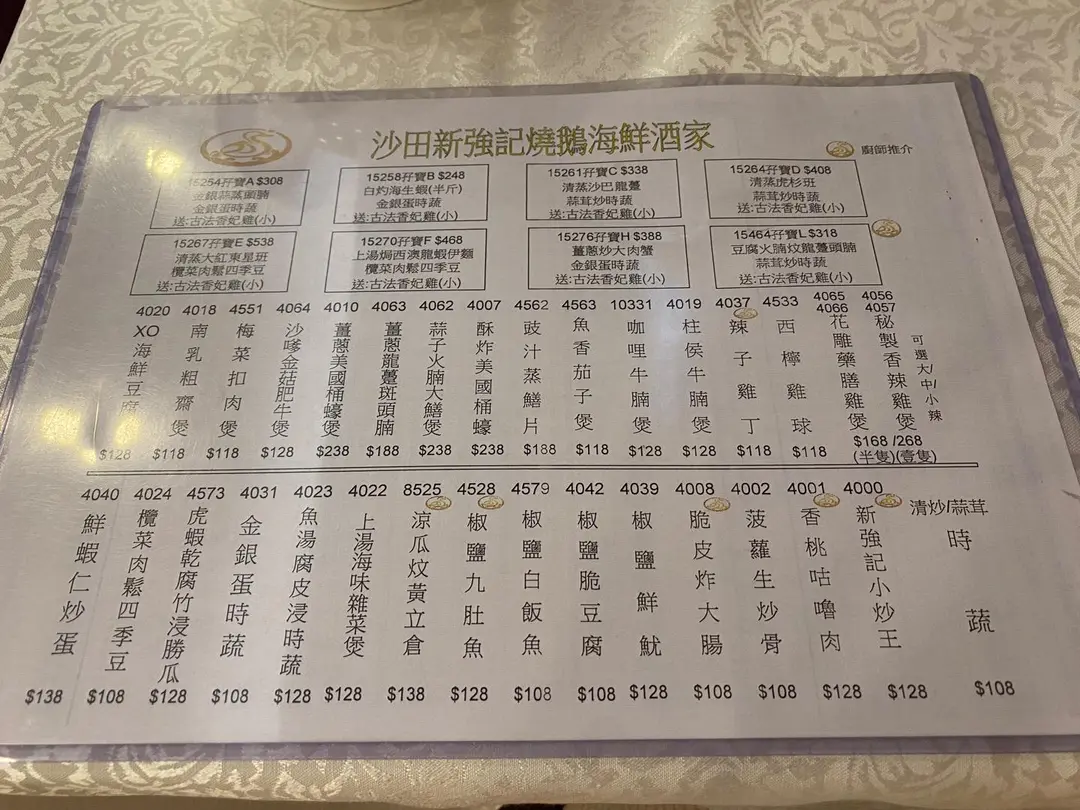 沙田新強記燒鵝海鮮酒家
廚師推介
15254孖寶A $308
金銀蒜蒸頭腩
金銀蛋時蔬
送:古法香妃雞(小)
15258孖寶B $248
白灼海生蝦(半斤)
金銀蛋時蔬
送:古法香妃雞(小)
15261孖寶C $338
清蒸沙巴龍躉
蒜茸炒時蔬
送:古法香妃雞(小)
15264孖寶D $408
清蒸虎杉班
蒜茸炒時蔬
送:古法香妃雞(小)
15267孖寶E $538
清蒸大紅東星班
欖菜肉鬆四季豆
送:古法香妃雞(小)
15270孖寶F $468
上湯焗西澳龍蝦伊麵
欖菜肉鬆四季豆
送:古法香妃雞(小)
15276孖寶H $388
薑蔥炒大肉蟹
金銀蛋時蔬
送:古法香妃雞(小)
15464孖寶L $318
豆腐火腩炆龍躉頭腩
蒜茸炒時蔬
送:古法香妃雞(小)
4056
4057
秘製香辣雞煲
可選大/中/小辣
4065
4066
花雕藥膳雞煲
$168 /268
(半隻)(壹隻)
4533
西檸雞球
$118
4037
辣子雞丁
$118
4019
柱侯牛腩煲
$128
10331
咖哩牛腩煲
$128
4563
魚香茄子煲
$118
4562
豉汁蒸鱔片
$188
4007
酥炸美國桶蠔
$238
4062
蒜子火腩大鱔煲
$238
4063
薑蔥龍躉斑頭腩
$188
4010
薑蔥美國桶蠔煲
$238
4064
沙嗲金菇肥牛煲
$128
4551
梅菜扣肉煲
$118
4018
南乳粗齋煲
$118
4020
XO海鮮豆腐
$128
清炒/蒜茸
時蔬
$108
4000
新強記小炒王
$128
4001
香桃咕嚕肉
$128
4002
菠蘿生炒骨
$108
4008
脆皮炸大腸
$108
4039
椒鹽鮮魷
$128
4042
椒鹽脆豆腐
$108
4579
椒鹽白飯魚
$108
4528
椒鹽九肚魚
$128
8525
涼瓜炆黃立倉
$138
4022
上湯海味雜菜煲
$128
4023
魚湯腐皮浸時蔬
$128
4031
金銀蛋時蔬
$108
4573
虎蝦乾腐竹浸勝瓜
$128
4024
欖菜肉鬆四季豆
$108
4040
鮮蝦仁炒蛋
$138